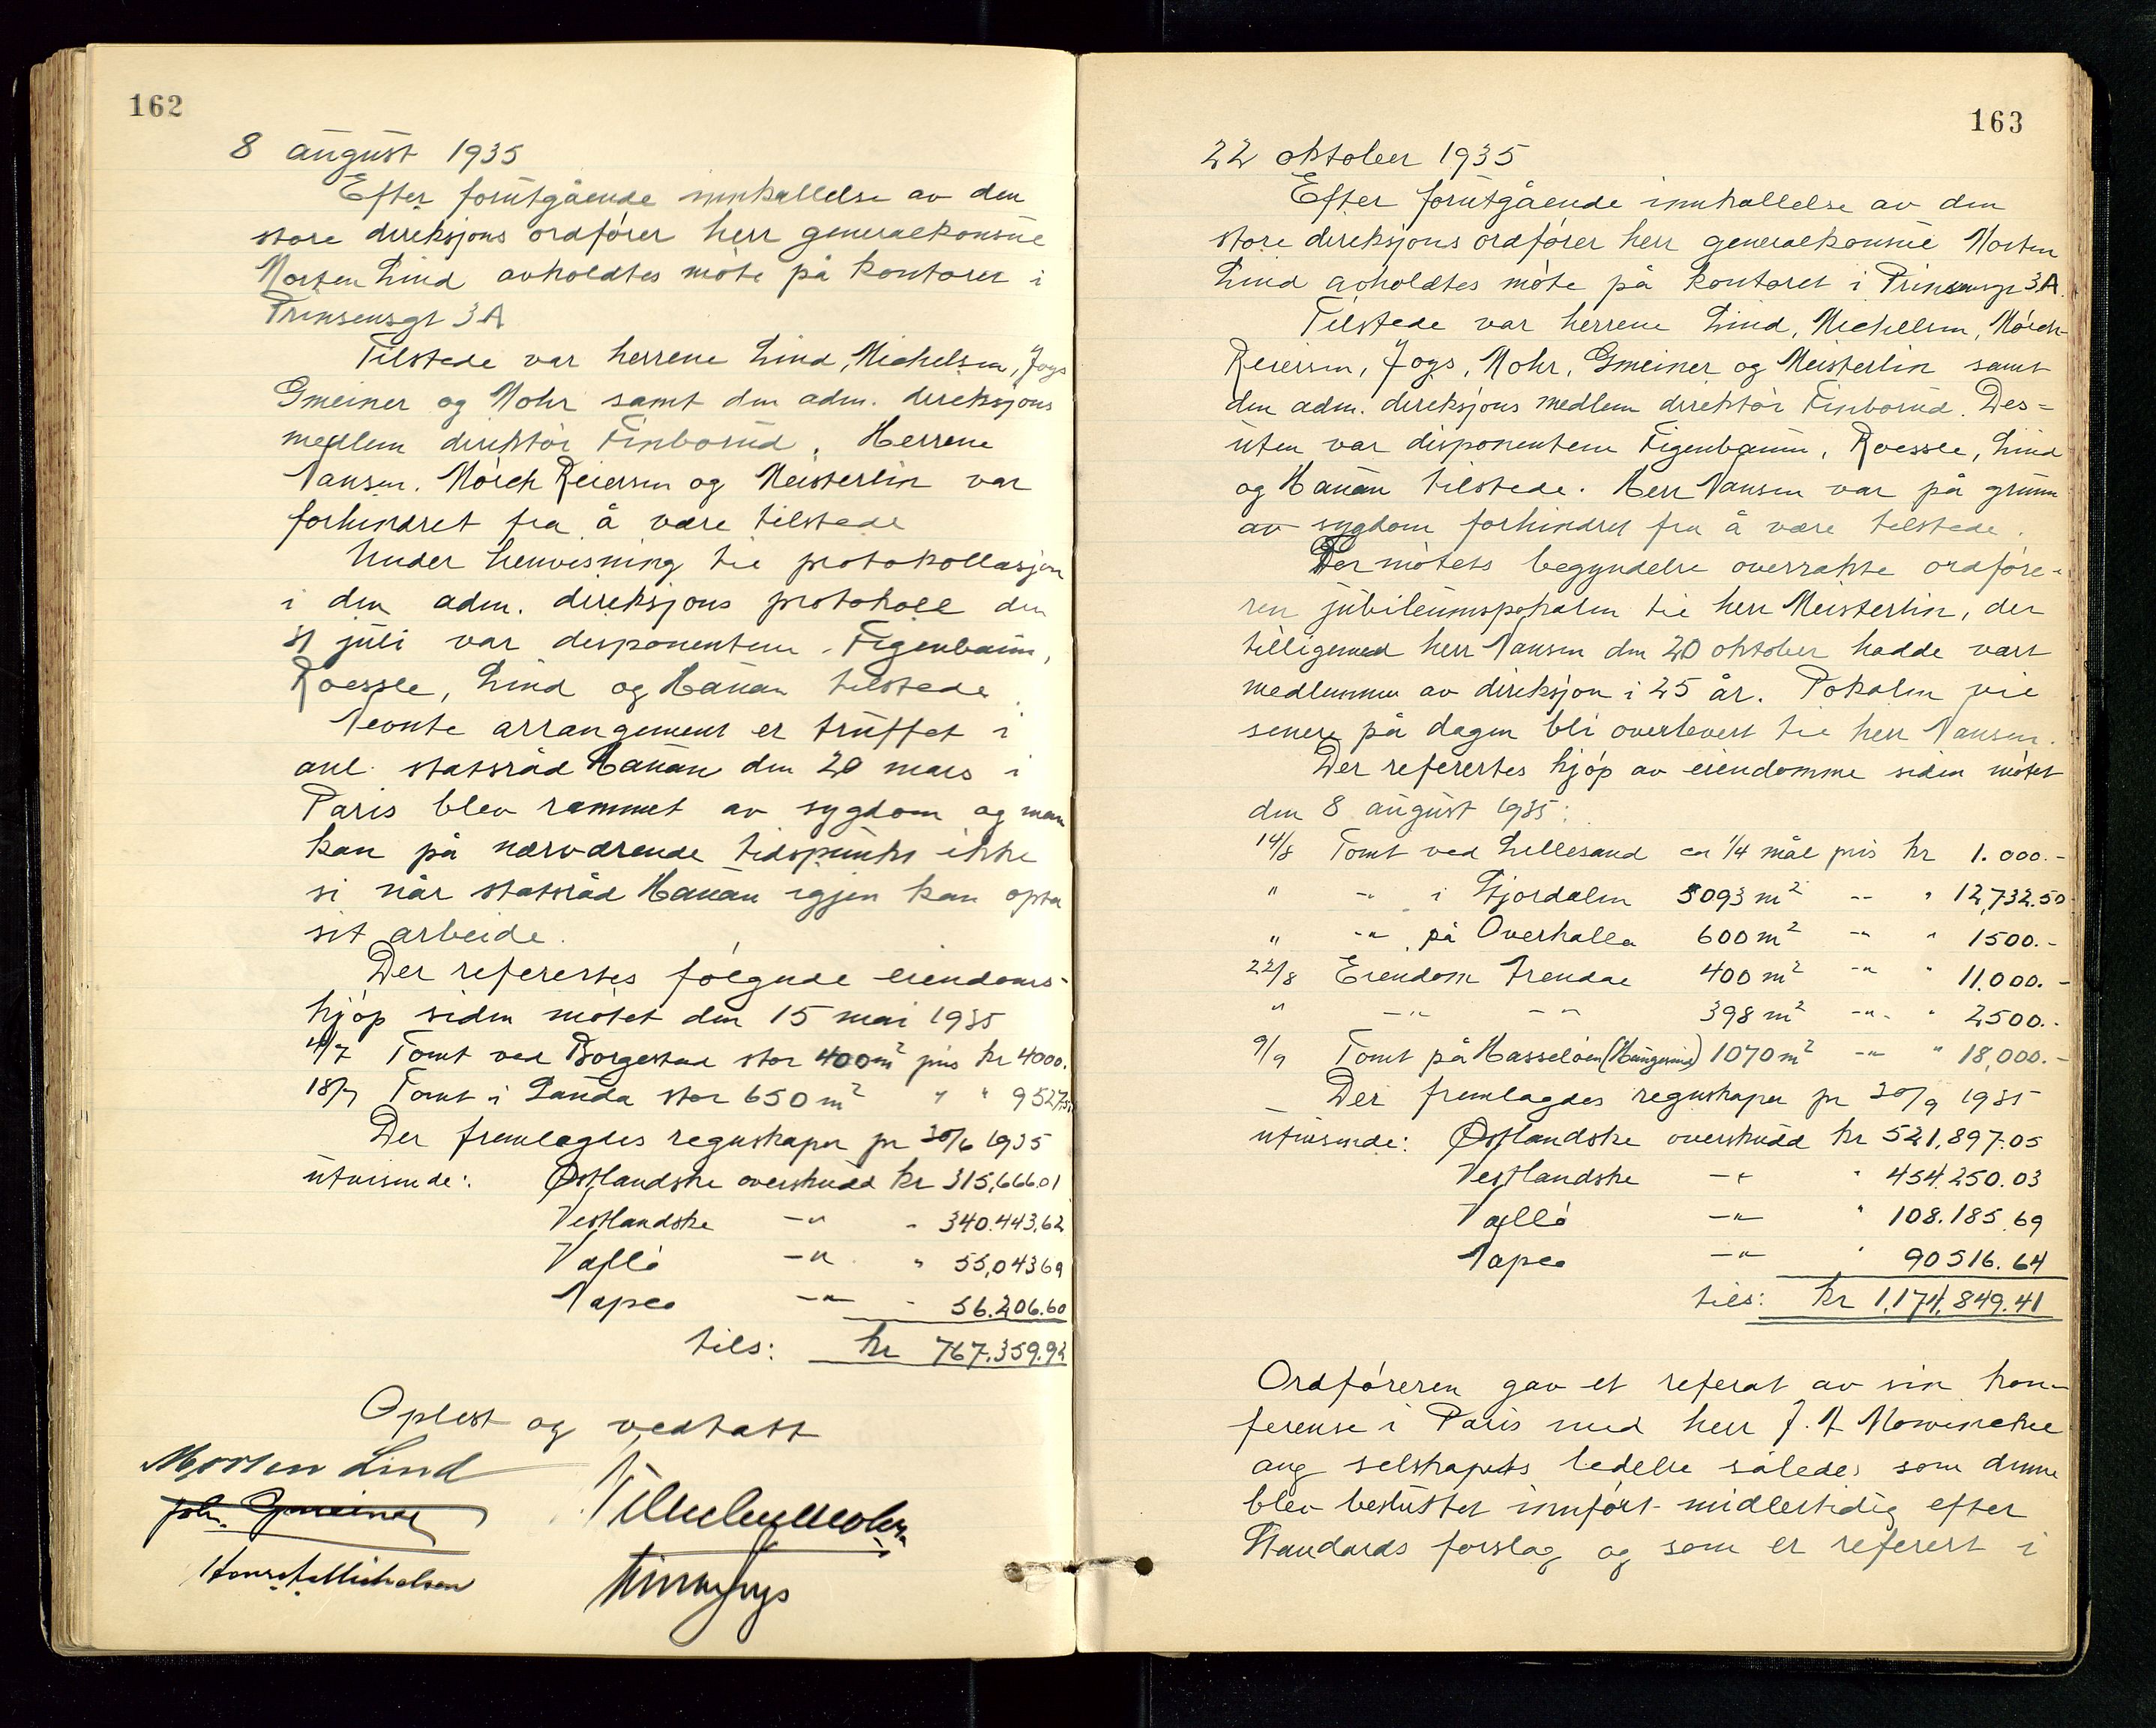 162
8 august 1935
Efter forutgående innkallelse av den
store direksjons ordfører herr generalkonsul
Morten Lind avholdtes møte på kontoret i
Prinsensgt 3A
Tilstede var herrene Lind, Michelsen, Joys
Gmeiner og Mohr samt den adm. direksjons
medlem direktør Finborud. Herrene
Nansen, Mørch Reiersen og Meisterlin var
forhindret fra å være tilstede
Under henvisning til protokollasjon
i den adm. direksjons protokoll den
31 juli var disponentene Figenbaum,
Roessle, Lind og Hanan tilstede.
Nevnte arrangement er truffet i
anl. statsråd Hanan den 20 mars i
Paris blev rammet av sygdom og man
kan på nærværende tidspunkt ikke
si når statsråd Hanan igjen kan opta
sit arbeide.
Der refertes følgende eiendoms-
kjøp siden møtet den 15 mai 1935
4/7 Tomt ved Borgestad stor 400 m² pris kr 4000.
18/7 Tomt i Sauda stor 650 m² " " 9527,51
Der fremlagdes regnskaper pr 30/6 1935
utvisende: Østlandske overskudd kr 315,666.01
Vestlandske -"- " 340.443,62
Vallø -"- " 55,043 69
Napco -"- " 56.206.60
tils: kr 767.359.92
Oplest og vedtatt
Morten Lind
Joh. Gmeiner
Vilhelm Mohr
163
22 oktober 1935
Efter forutgående innkallelse av den
store direksjons ordfører herr generalkonsul Morten
Lind avholdtes møte på kontoret i Prinsensgt 3A.
Tilstede var herrene Lind, Michelsen, Mørch
Reiersen, Joys, Mohr, Gmeiner og Meisterlin samt
den adm. direksjons medlem direktør Finborud. Des=
uten var disponentene Figenbaum, Roessle, Lind
og Hanan tilstede. Herr Nansen var på grunn
av sygdom forhindret fra å være tilstede.
Der møtets begyndelse overrakte ordføre-
ren jubileumspokalen til herr Meisterlin, der
tilligemed herr Nansen den 20 oktober hadde vært
medlemmer av direksjon i 25 år. Pokalen vil
senere på dagen bli overlevert til herr Nansen.
Der refertes kjøp av eiendomme siden møtet
den 8 august 1935:
14/8 Tomt ved Lillesand ca 1/4 mål pris kr 1.000.-
" -"- i Stjordalen 5093 m² -"- " 12,732.50
" -"- på Overhalla 600 m² -"- " 1500.-
22/8 Eiendom Arendal 400 m² -"- " 11.000.-
" -"- -"- 398 m² -"- " 2500.-
9/9 Tomt på Hasseløen (Haugesund) 1070 m² -"- " 18,000.-
Der fremlagdes regnskaper pr 30/9 1935
utvisende: Østlandske overskudd kr 521,897.05
Vestlandske -"- " 454.250.03
Vallø -"- " 108.185.69
Napco -"- " 90516.64
tils: kr 1.174.849.41
Ordføreren gav et referat av sin kon-
feranse i Paris med herr J. A Mowinckel
ang selskapets ledelse således som denne
blev besluttet innført midlertidig efter
Standards forslag og som er referert i